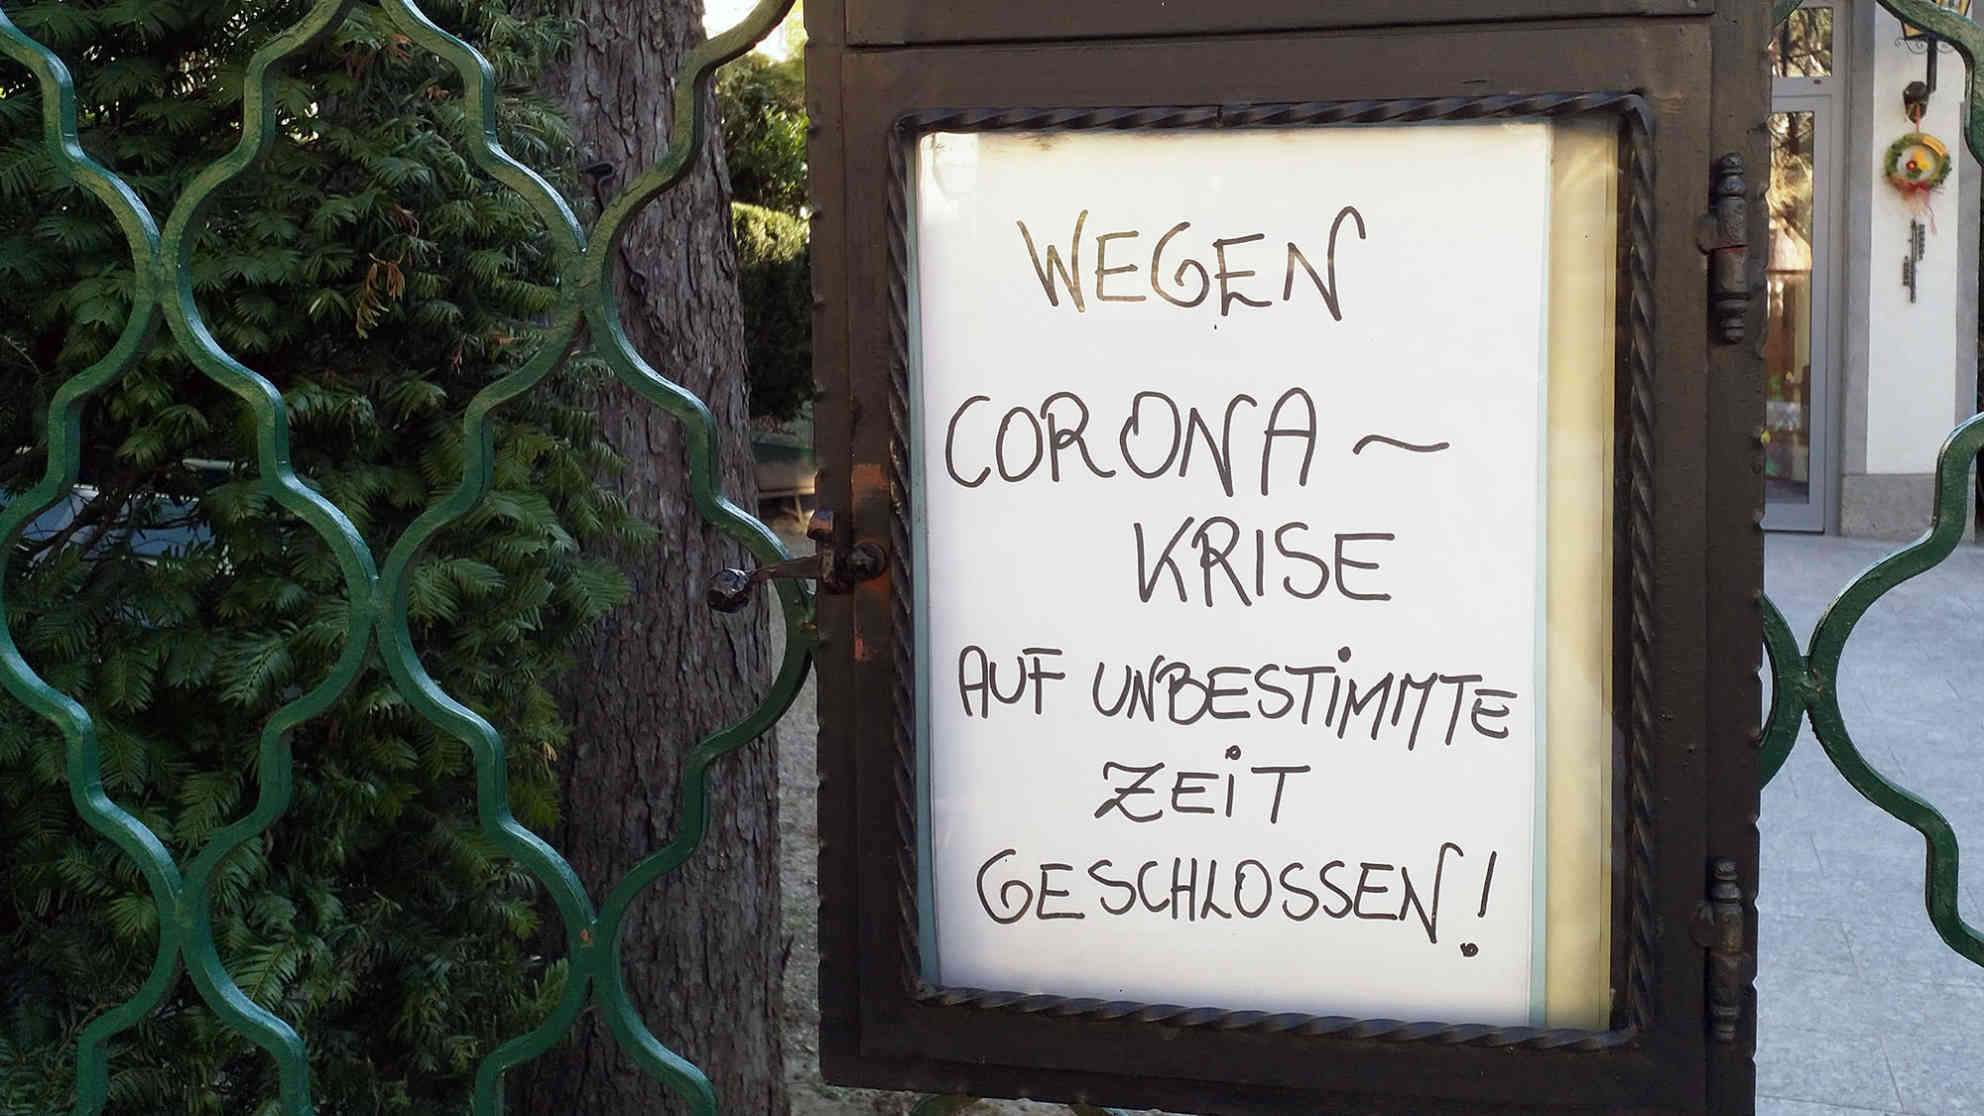 WEGEN
CORONA~
KRISE
AUF UNBESTIMMTE
ZEIT
GESCHLOSSEN!